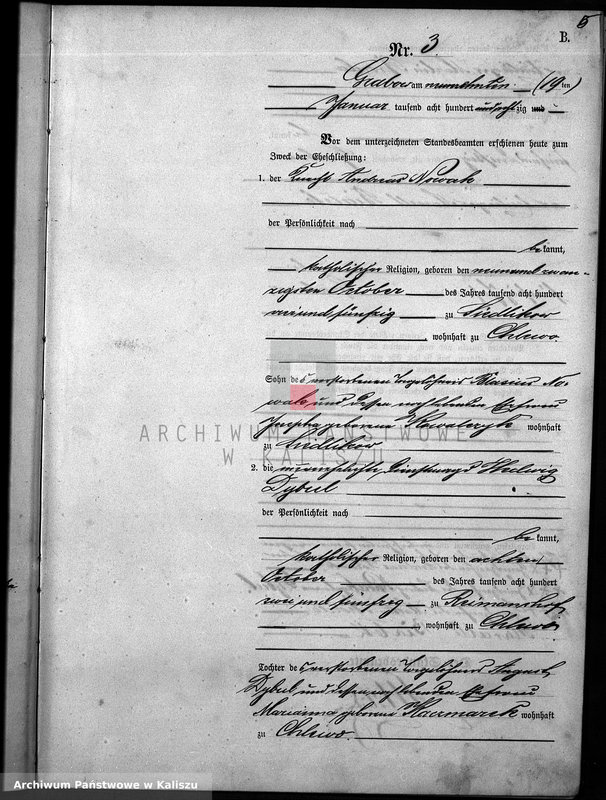 5
B.
Nr. 3.
Grabow am neunzehnten (19ten)
Januar tausend acht hundert achtzig und
Vor dem unterzeichneten Standesbeamten erschienen heute zum
Zweck der Eheschließung:
1. der Knecht Andreas Nowak
der Persönlichkeit nach
bekannt,
katholischer Religion, geboren den neunundzwan-
zigsten October des Jahres tausend acht hundert
und fünfzig zu Siedlikow
, wohnhaft zu Chlewo
Sohn des verstorbenen Tagelöhners Blasius No-
wak und dessen noch lebenden Ehefrau
Josepha geborene Kowalczyk wohnhaft
zu Siedlikow
2. die unverehelichte Dienstmagd Hedwig
Dybul
der Persönlichkeit nach
bekannt,
katholischer Religion, geboren den achten
October des Jahres tausend acht hundert
zwei und fünfzig zu Reimannshof
, wohnhaft zu Chlewo
Tochter des verstorbenen Tagelöhners August
Dybul und dessen noch lebenden Ehefrau
Marianna geborene Kaczmarek wohnhaft
zu Chlewo.
ARCHIWUM PAŃSTWOWE
W KALISZU
Archiwum Państwowe w Kaliszu